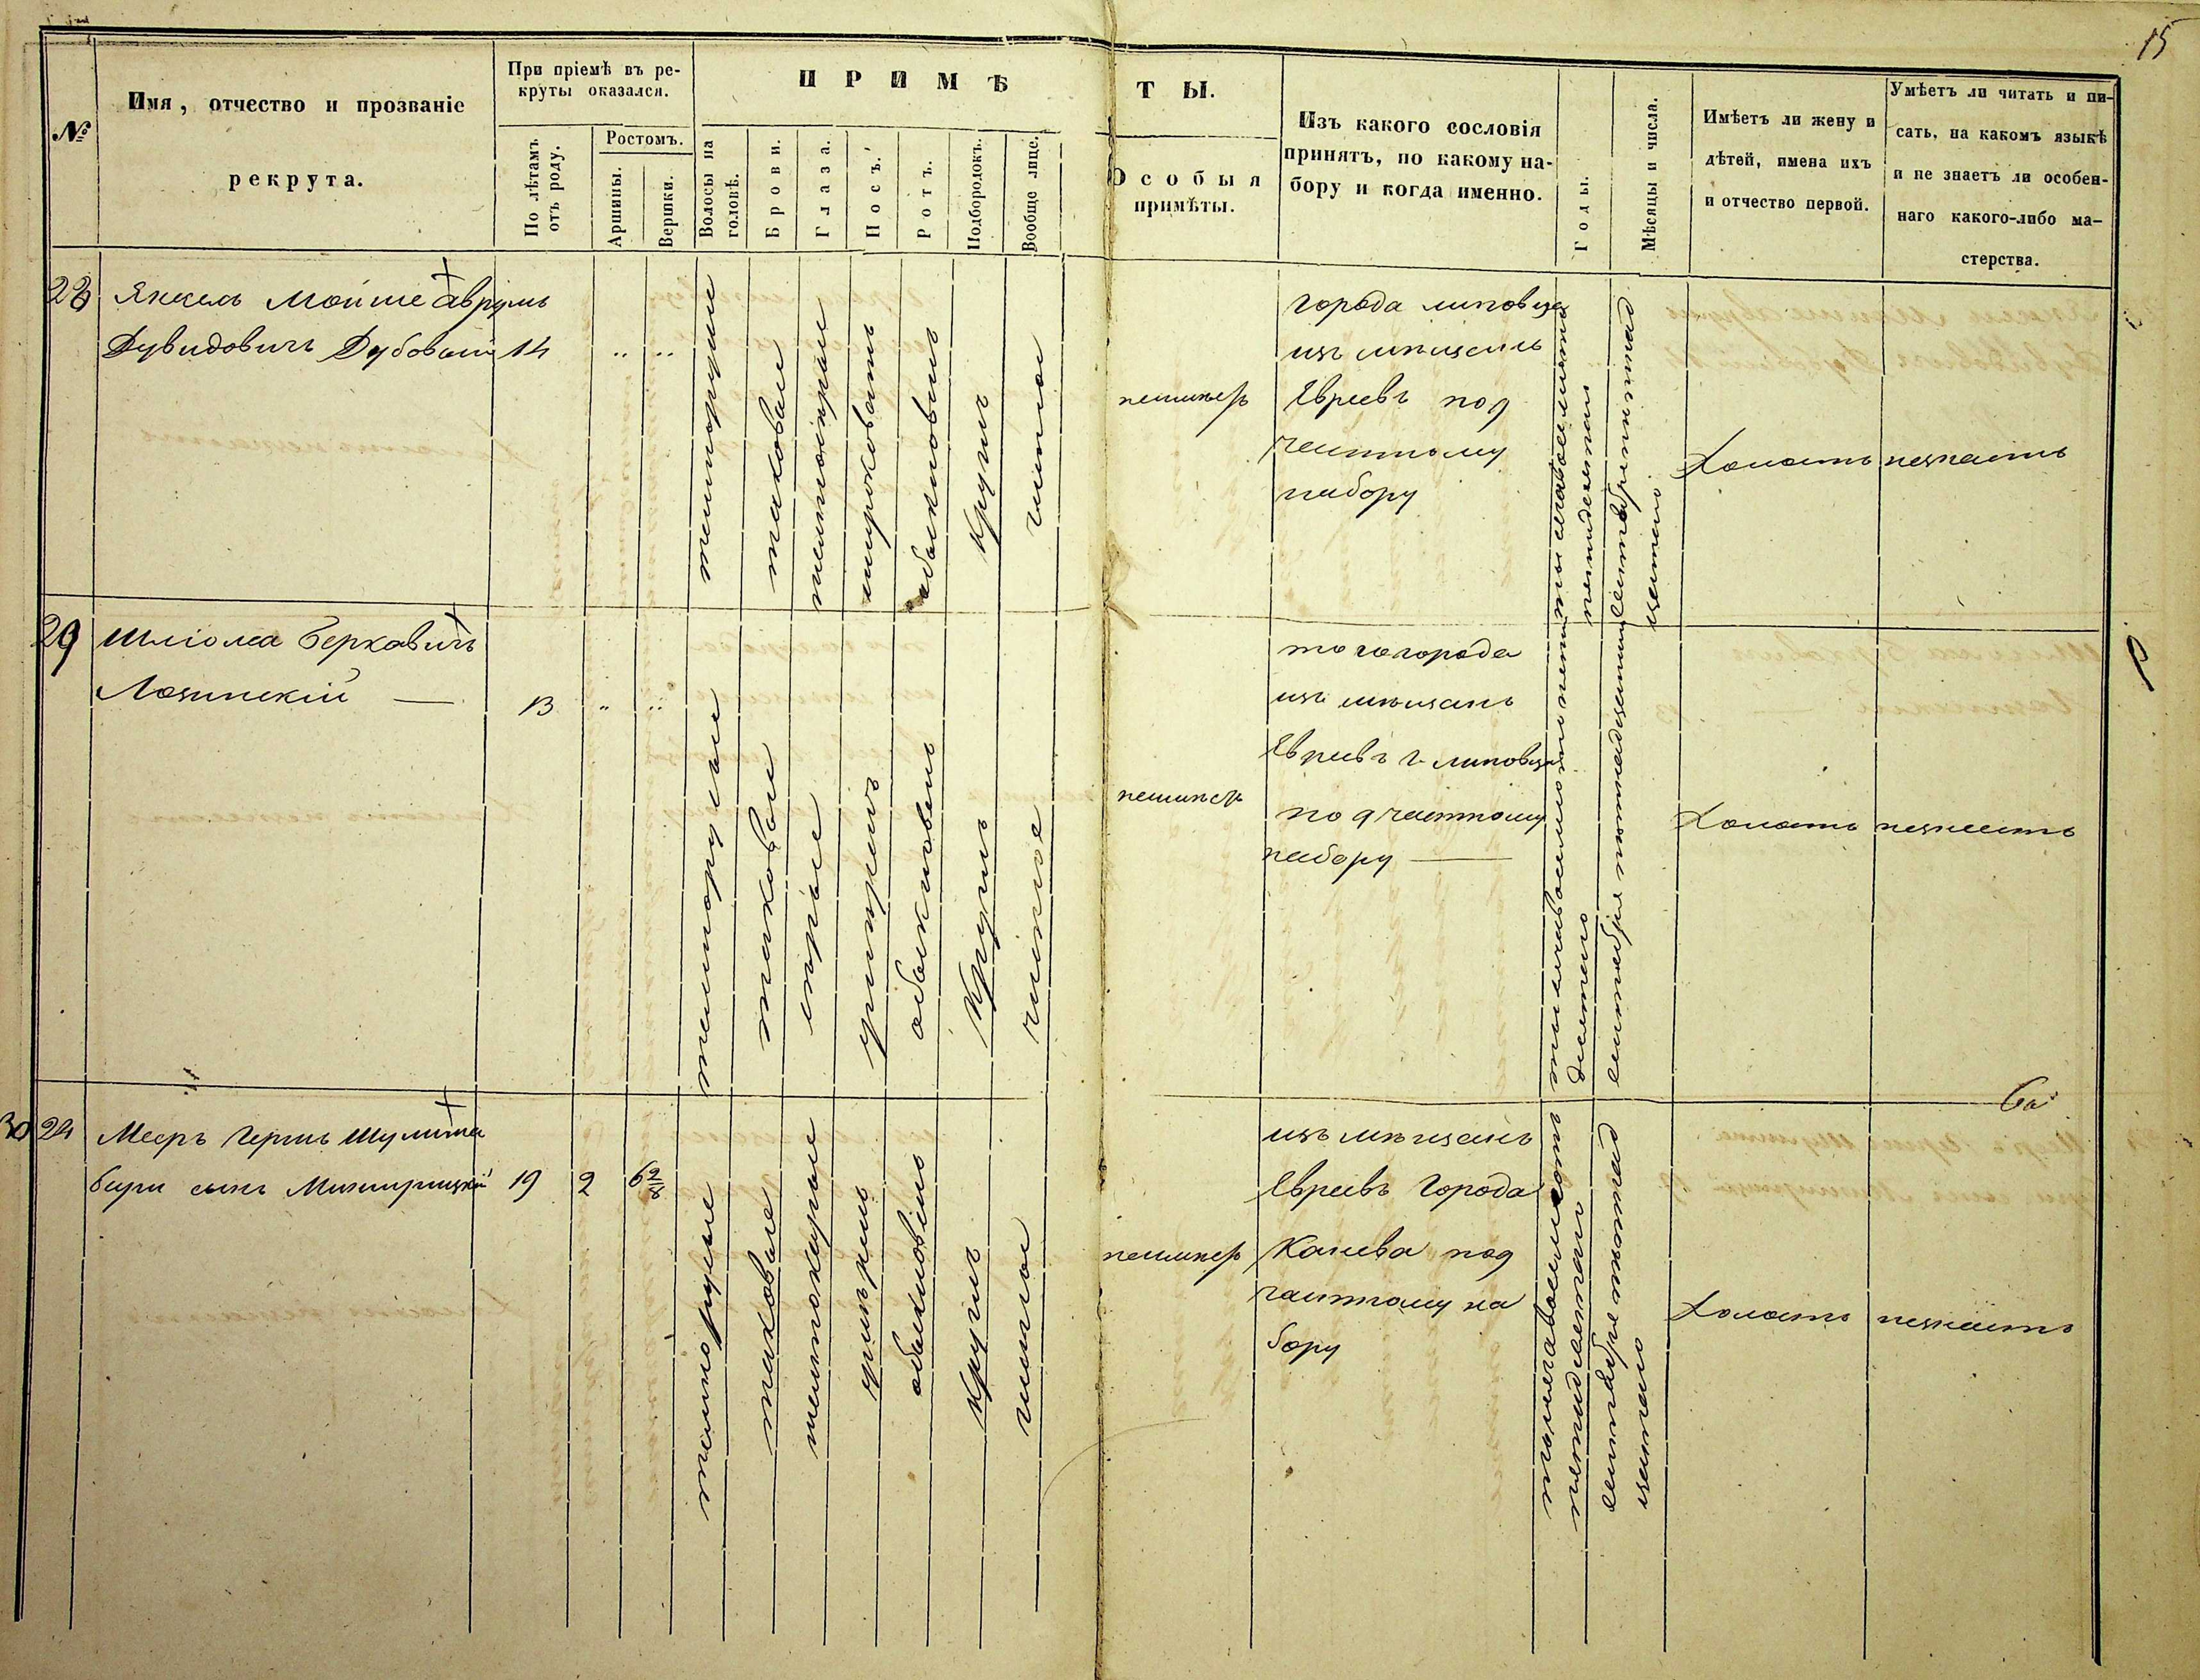 15
№
Имя, отчество и прозваніе
рекрута.
При пріемѣ въ ре-
круты оказался.
По лѣтамъ
отъ роду.
Ростомъ.
Аршины.
Вершки.
ПРИМѢ
ТЫ.
Волосы на
головѣ.
Брови.
Глаза.
Носъ.
Ротъ.
Подбородокъ.
Вообще лице.
Особыя
примѣты.
Изъ какого сословія
принятъ, по какому на-
бору и когда именно.
Годы.
Мѣсяцы и числа.
Имѣетъ ли жену и
дѣтей, имена ихъ
и отчество первой.
Умѣетъ ли читать и пи-
сать, на какомъ языкѣ
и не знаетъ ли особен-
наго какого-либо ма-
стерства.
28
Янкель Мойше Аврумъ
Дувидовичъ Дубовый
14
темнорусые
таковые
широковатъ
обыкновенъ
круглъ
чистое
города липовца
изъ мѣщанъ
Евреевъ под
частному
набору
Холостъ
незнаетъ
29
Шліома Берковичъ
Лозинскій
13
темнорусые
таковые
серые
обыкновенъ
круглъ
чистое
того города
изъ мѣщанъ
Евреевъ г. липовца
под частному
набору
тысяча восемьсотъ пять
десятого
сентября пятнадцатого
Холостъ
незнаетъ
30
24
Мееръ Гершъ Шулима
сынъ
19
2
6 2/8
темнорусые
таковые
обыкновенъ
круглъ
чистое
изъ мѣщанъ
Евреевъ Города
Канева под
частному на
бору
тысяча восемьсотъ
пятидесятого
сентября пятнад
цатого
Холостъ
незнаетъ